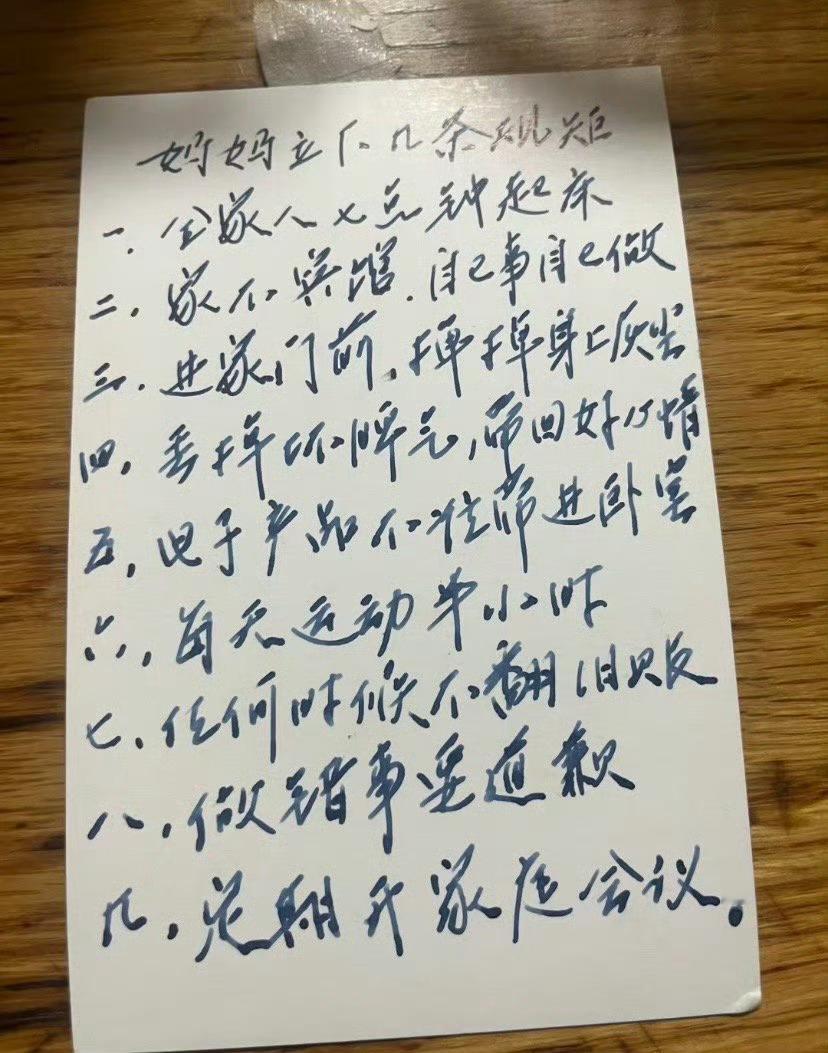 妈妈立下几条规矩
一、全家人七点钟起床
二、家不宾馆、自己事自己做
三、进家门前、掸掸身上灰尘
四、丢掉坏脾气,带回好心情
五、电子产品不准带进卧室
六、每天运动半小时
七、任何时候不翻旧账
八、做错事要道歉
九、定期开家庭会议。